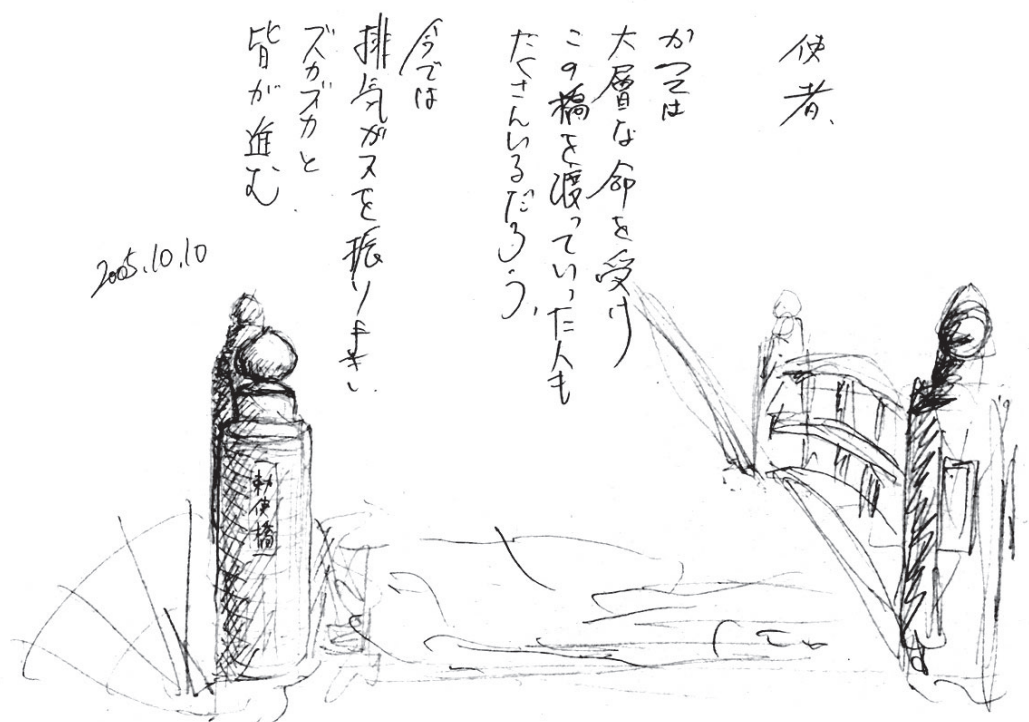 使者、
かつては
大層な命を受け
この橋を渡っていった人も
たくさんいるだろう、
今では
排気ガスを振りまき、
ズカズカと
皆が進む
2005.10.10
勅使橋